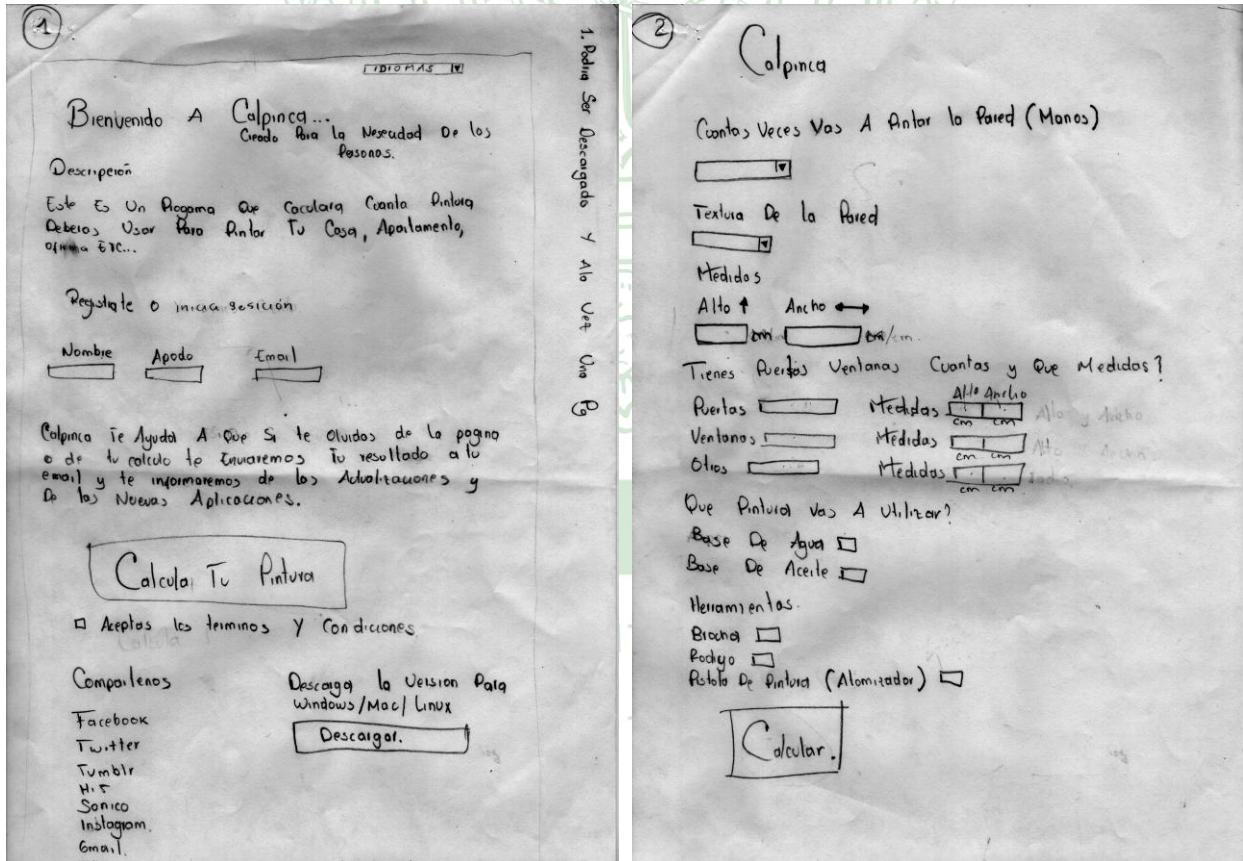 1
IDIOMAS
Bienvenido A Calpinca...
Creado Para la Nesecidad De las
Personas.
Descripción
Este Es Un Programa Que Caculara Cuanta Pintura
Deberas Usar Para Pintar Tu Casa, Apartamento,
oficina ETC...
Registrate o inicia sesición
Nombre Apodo Email
Calpinca Te Ayuda A Que Si te Olvidas de la pagina
o de tu calculo te Enviaremos Tu resultado a tu
email y te informaremos de las Actualizaciones y
De las Nuevas Aplicaciones.
Calcula Tu Pintura
Aceptas los terminos Y Condiciones
Compartenos
Facebook
Twitter
Tumblr
Hi5
Sonico
Instagram.
Gmail.
Descarga la Version Para
Windows/Mac/Linux
Descargar.
1. Podra Ser Descargado Y Ala Vez Una Pa
2
Calpinca
Cuantas Veces Vas A Pintar la Pared (Manos)
Textura De la Pared
Medidas
Alto Ancho
cm cm/cm.
Tienes Puertas Ventanas Cuantas y Que Medidas?
Alto Ancho
Puertas Medidas Alto y Ancho
cm cm
Ventanas Medidas Alto Ancho
cm cm
Otros Medidas
cm cm
Que Pintura Vas A Utilizar?
Base De Agua
Base De Aceite
Herramientas.
Brocha
Rodiyo
Pistola De Pintura (Atomizador)
Calcular.